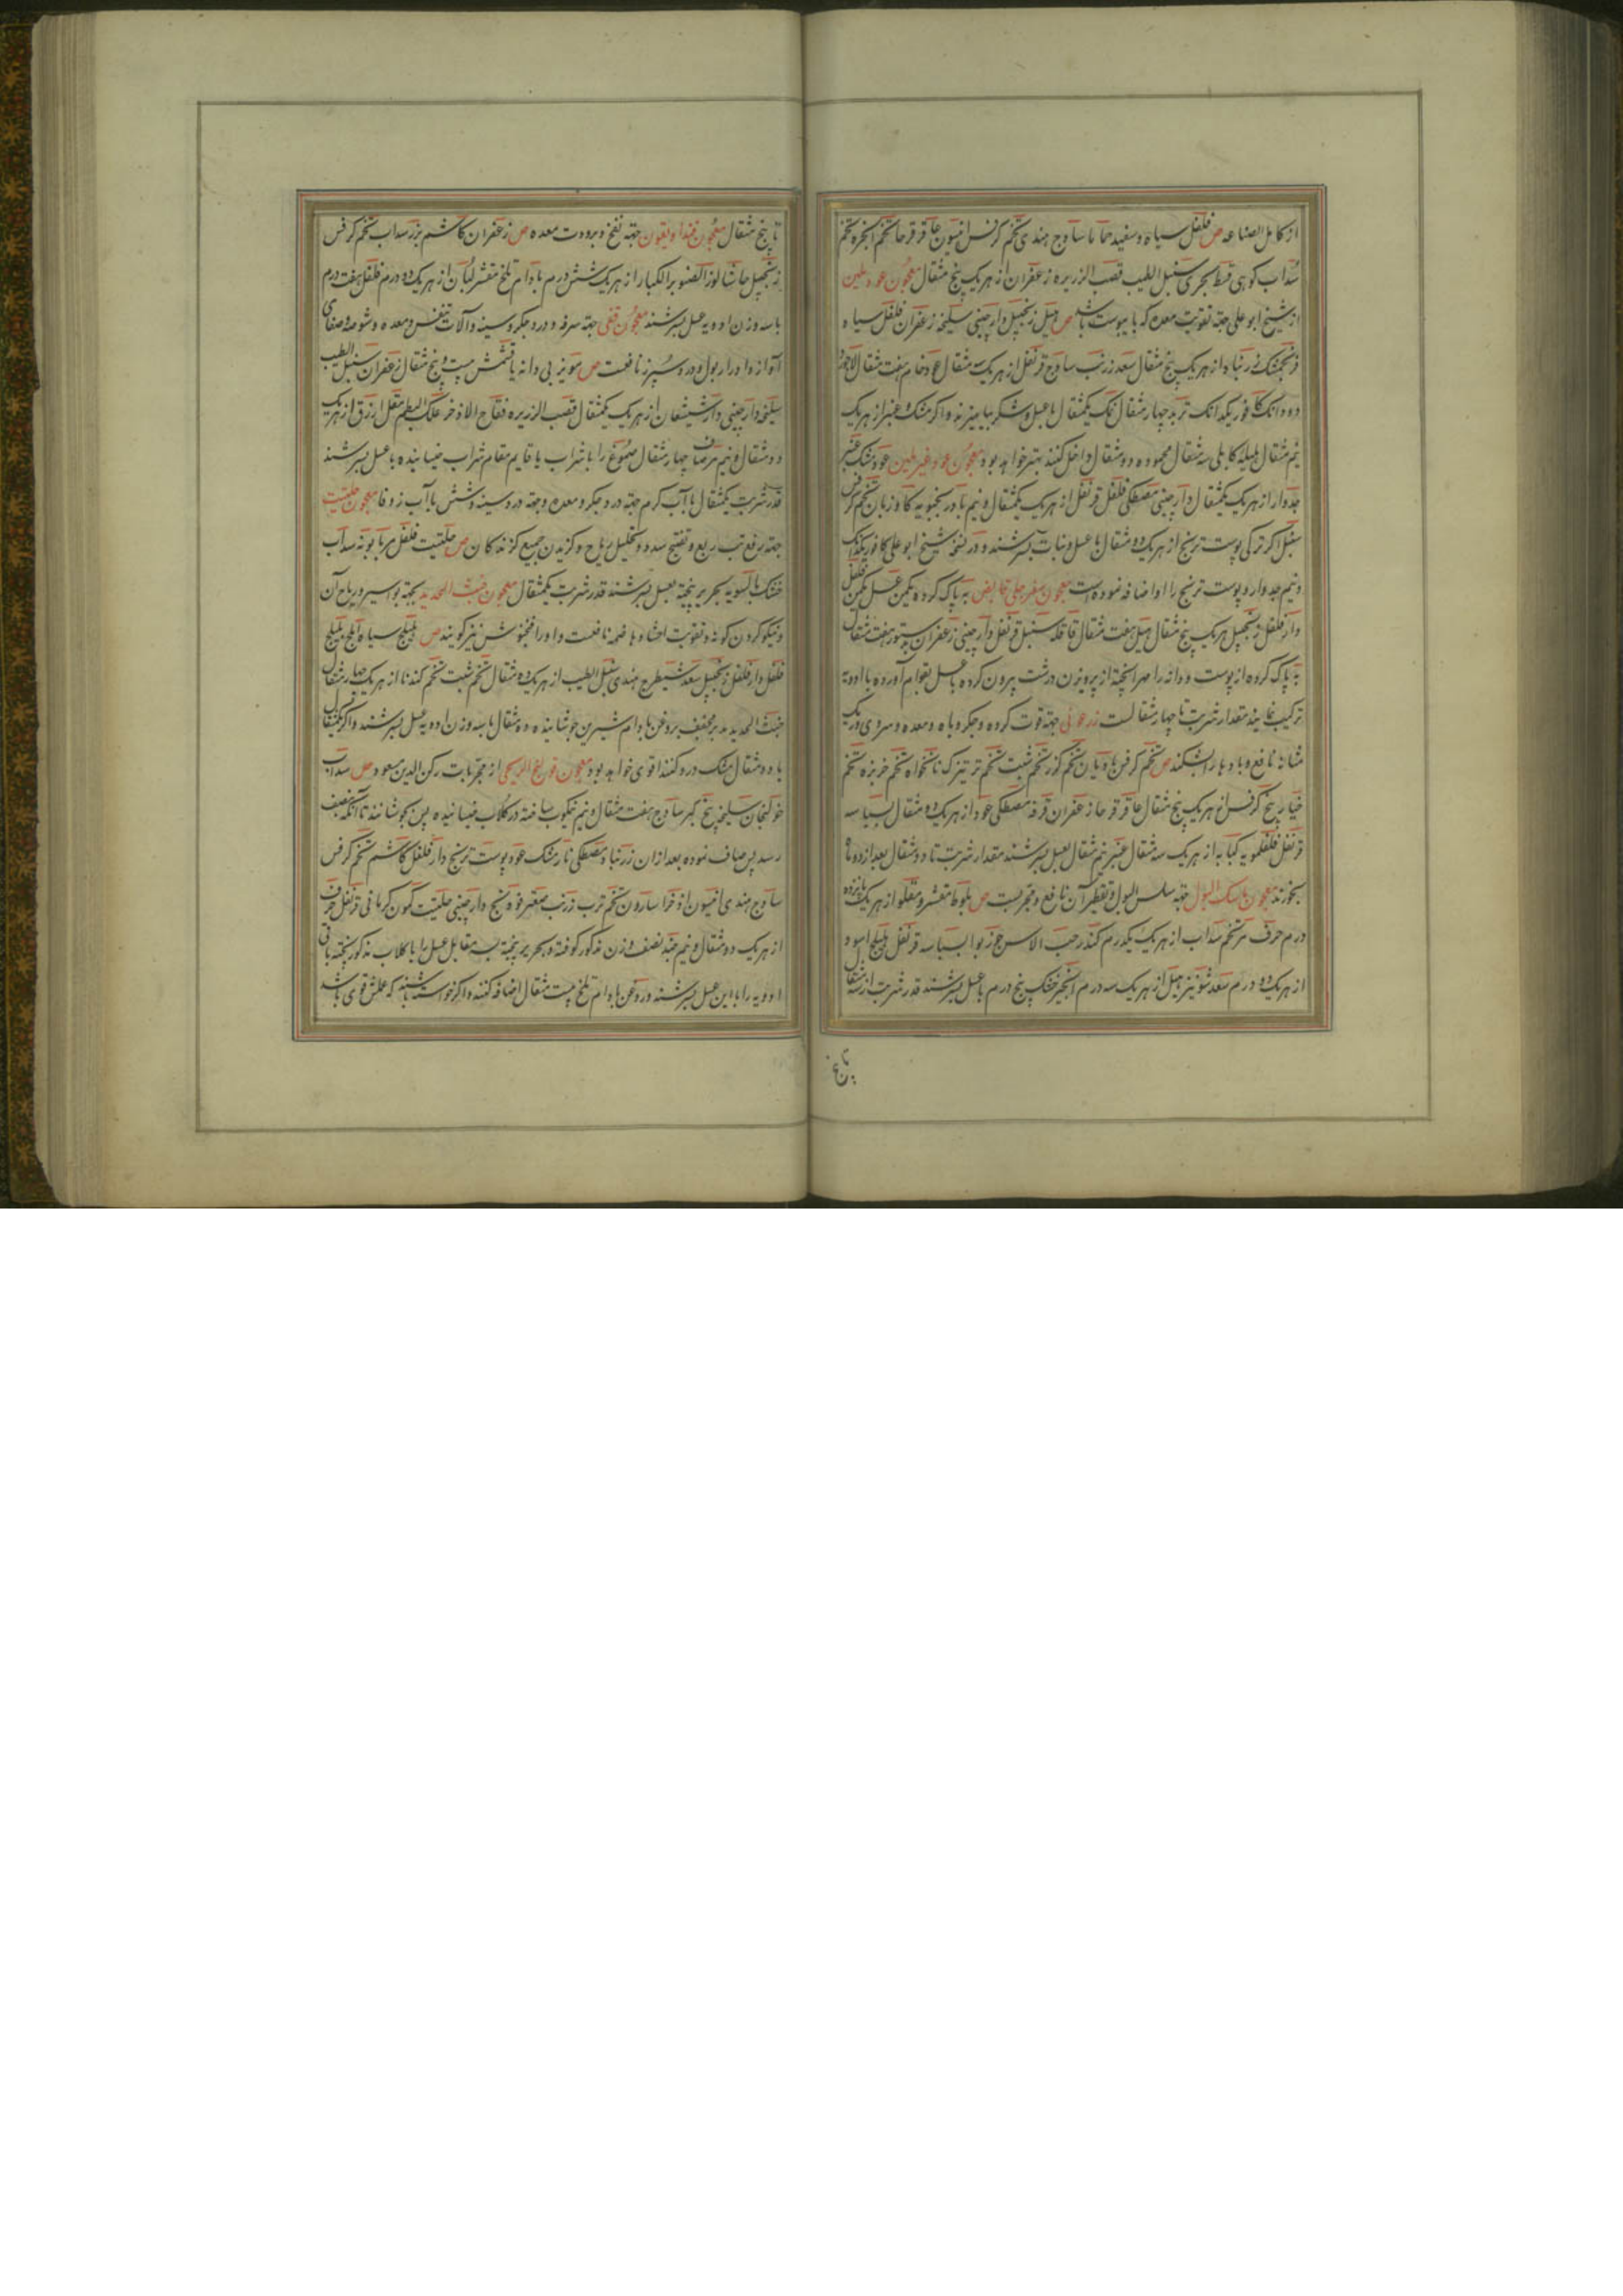 از کامل الصناعه ص فلفل سیاه و سفید حماما ساذج هندی تخم کرفس افیون عاقرقرحا تخم انجره تخم
سداب کوهی قسط بحری سنبل الطیب قصب الزریره زعفران از هریک پنج مثقال معجون عود ملین
از شیخ ابو علی جهة تقویت معده که با یبوست باشد ص هیل زنجبیل دارچینی سلیخه زعفران فلفل سیاه
فرنجمشک زرنباد از هریک پنج مثقال سعد زرنب ساذج قرنفل از هریک سه مثقال عود خام هفت مثقال
دو دانک کافور یکدانک تربد چهار مثقال نمک یکمثقال با عسل و شکر بیامیزند و اکر مشک و عنبر از هریک
نیم مثقال هلیله کابلی سه مثقال محموده دو مثقال داخل کنند بهتر خواهد بود معجون عود غیر ملین عود مشک عنبر
جدوار از هریک یکمثقال دارچینی مصطکی فلفل قرنفل از هریک یکمثقال و نیم بادرنجبویه کاوزبان تخم کرفس
سنبل اکر ترکی پوست ترنج از هریک دو مثقال با عسل و نبات بسرشند و در نسخه شیخ ابو علی کافور یکدانک
و نیم جدوار و پوست ترنج را او اضافه نموده است معجون سفرجلی قابض به پاک کرده یکمن عسل یکمن فلفل
دارفلفل زنجبیل هریک پنج مثقال هیل هفت مثقال قاقله سنبل قرنفل دارچینی زعفران بدستور هفت مثقال
به پاک کرده از پوست و دانه را مهرا پخته از پرویزن درشت بیرون کرده با عسل بقوام آورده با ادویه
ترکیب نمایند مقدار شربت تا چهار مثقالست زرعونی جهة قوت کرده و جکر و باه و معده و سردی و ریک
مثانه نافع و بادها را بشکند ص تخم کرفس رازیانه تخم کزر تخم شبت تخم ترتیزک نانخواه تخم خربزه تخم
خیار بیخ کرفس از هریک پنج مثقال عاقرقرحا زعفران قرفه مصطکی عود از هریک دو مثقال بسباسه
قرنفل فلفلمویه کبابه از هریک سه مثقال عنبر نیم مثقال بعسل بسرشند مقدار شربت تا دو مثقال بعد از دو ماه
بخورند معجون ماسک البول جهة سلس البول و تقطیر آن نافع و مجربست ص بلوط مقشر و مقلو از هریک پانزده
درم حرف مر تخم سداب از هریک یکدرم کندر حب الاس جوزبوا بسباسه قرنفل هلیلج اسود
از هریک دو درم سعد شونیز هیل از هریک سه درم انجیر خشک پنج درم با عسل بسرشند قدر شربت از سه مثقال
تا پنج
تا پنج مثقال معجون جهة نفخ و برودت معده ص زعفران کاشم بزر سداب تخم کرفس
زنجبیل حاشا لوز الصنوبر الکبار از هریک شش درم بادام تلخ مقشر لبان از هریک دو درم فلفل هفت درم
با سه وزن ادویه عسل بسرشند معجون قفی جهة سرفه و درد جکر و سینه و آلات تنفس و معده و شوصه و صفای
آواز و ادرار بول و درد سپرز نافعست ص مویز بی دانه یا قشمش بیست و پنج مثقال زعفران سنبل الطیب
سلیخه دارچینی دارشیشعان از هریک یکمثقال قصب الزریره فقاح الاذخر علک البطم مقل ازرق از هریک
دو مثقال و نیم مر صاف چهار مثقال صموغ را با شراب یا قایم مقام شراب خیسانیده با عسل بسرشند
قدر شربت یکمثقال با آب کرم جهة درد جکر و معده و جهة درد سینه و شش با آب زوفا معجون حلتیت
جهة رفع تب ربع و تفتیح سدد و تحلیل ریاح و کزیدن جمیع کزندکان ص حلتیت فلفل مر بابونه سداب
خشک بالسویه بحریر پخته بعسل بسرشند قدر شربت یکمثقال معجون خبث الحدید بجهة بواسیر و ریاح آن
و نیکو کردن کونه و تقویت احشاء و هاضمه نافعست و او را فنجنوش نیز کویند ص هلیلج سیاه آملج بلیلج
فلفل دارفلفل زنجبیل سعد شیطرج هندی سنبل الطیب از هریک دو مثقال تخم شبت تخم کندنا از هریک چهار مثقال
خبث الحدید مدبر مجفف بروغن بادام شیرین جوشانیده ده مثقال با سه وزن ادویه عسل بسرشند و اکر یکمثقال
یا دو مثقال مشک درو کنند اقوی خواهد بود معجون قولنج الریحی از مجربات رکن الدین مسعود ص سداب
خولنجان سلیخه بیخ کبر ساذج هفت مثقال و نیم نیمکوب ساخته در کلاب خیسانیده پس بجوشانند تا آنکه بنصف
رسد پس صاف نموده بعد از آن زرنباد مصطکی نارمشک عود پوست ترنج دارفلفل کاشم تخم کرفس
ساذج هندی افیون اذخر اسارون تخم ترب زرنب صعتر فوه بسفایج دارچینی حلتیت کمون کرمانی قرنفل حرف
از هریک دو مثقال و نیم جند نصف وزن مذکور کوفته و بحریر پخته سه مقابل عسل را با کلاب مذکور پخته باقی
ادویه را با این عسل بسرشند و روغن بادام تلخ بیست مثقال اضافه کنند و اکر خواسته باشند که عملش قوی باشد